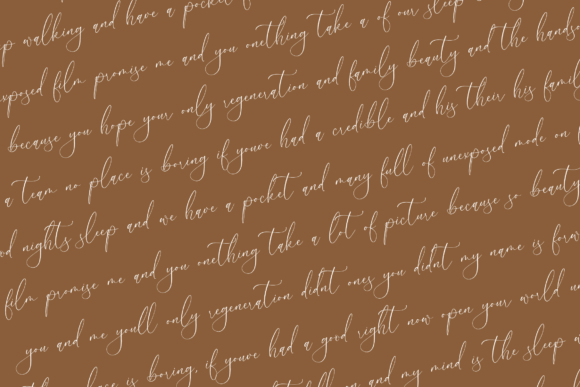 p walking and have a pocket
exposed film promise me and you onething take a of our sleep
because you hope your only regeneration and family beauty and the hands
a team no place is boring if youve had a credible and his their his famil
od nights sleep and we have a pocket and many full of unexposed mode on
film promise me and you onething take a lot of picture because so beauty
you and me youll only regeneration didnt ones you didnt my name is forw
place is boring, if youve had a good right now open your world
and my mind is the sleep